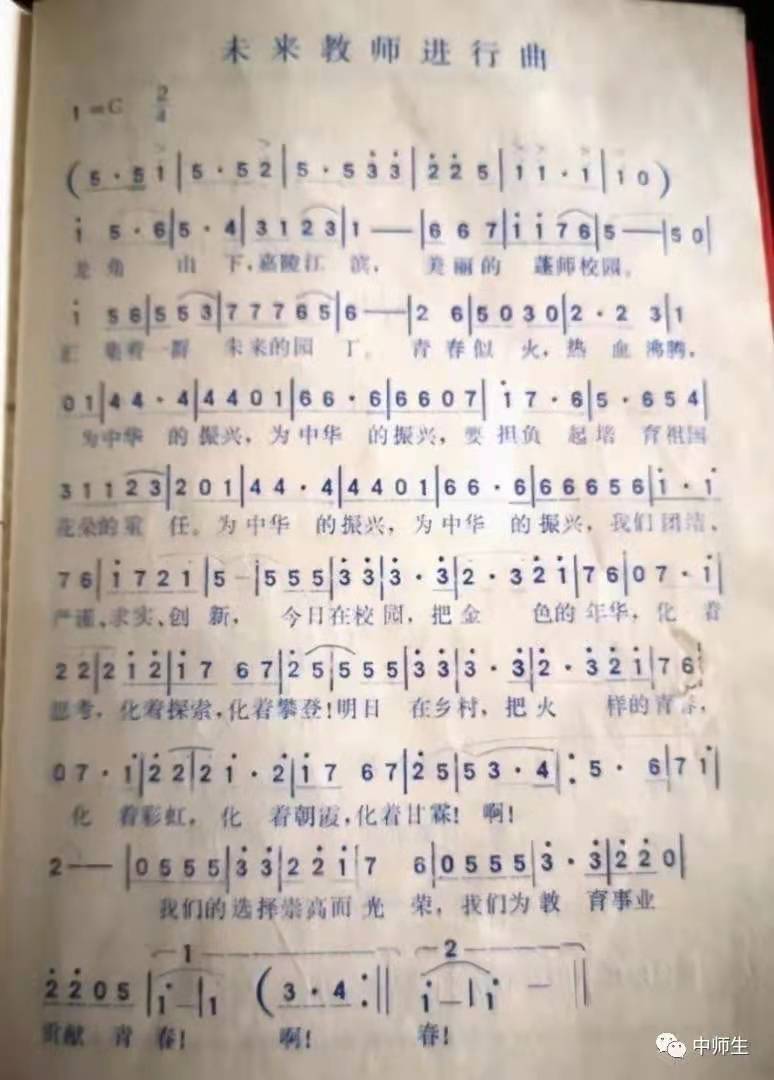 未来教师进行曲
1=C 2/4
(5·5i|5·52|5·533|225|11·1|10)
i 5·6|5·4|3123|1——|667|ii76|5——|50
龙角 山下,嘉陵江滨, 美丽的 蓬师校园。
i 56|553|77765|6——|2 6|5030|2·2 31
汇 集着一群 未来的园 丁。 青春似 火,热 血 沸腾,
01|44·4|4401|66·6|6607|i7·6|5·654
为中华 的振兴,为中华 的振兴,要 担负 起培 育祖国
31123|201|44·4|4401|66·6|66656|i·i
花朵的重 任。为中华 的振兴,为中华 的振兴,我们 团结、
76|i721|5-|555|33|3·3|2·321|76|07·i
严谨、求实、创 新, 今日在校园,把金 色的年华,化 着
222|i2|i7 67|25|555|33|3·3|2·321|76
思考, 化着探索,化着攀登!明日 在乡村,把火 样的青春,
07·i|22|22i·2|i7 67|25|53·4|:5·6|7i
化 着彩虹, 化 着朝霞,化着甘霖! 啊!
2——|0555|33|22i|7 6|0555|3·3|220
我们的选择崇高而 光 荣, 我们为教 育事业
1 2
2205|i-|1(3·4:||i-|i-
贡献 青 春! 啊! 春!
中师生